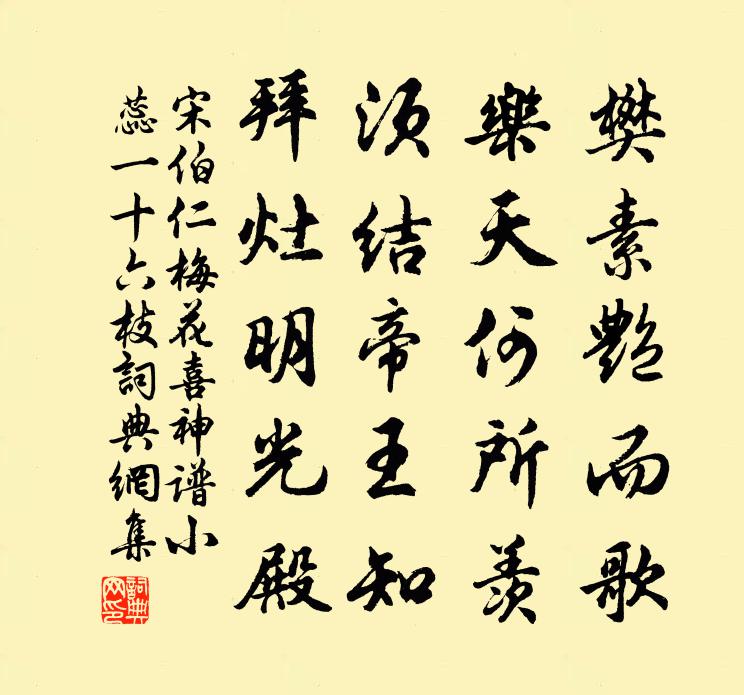 樊素艷而歌
樂天何所羨
須結帝王知
拜灶明光殿
宋伯仁梅花喜神谱小
蕊一十六枝詞典網集